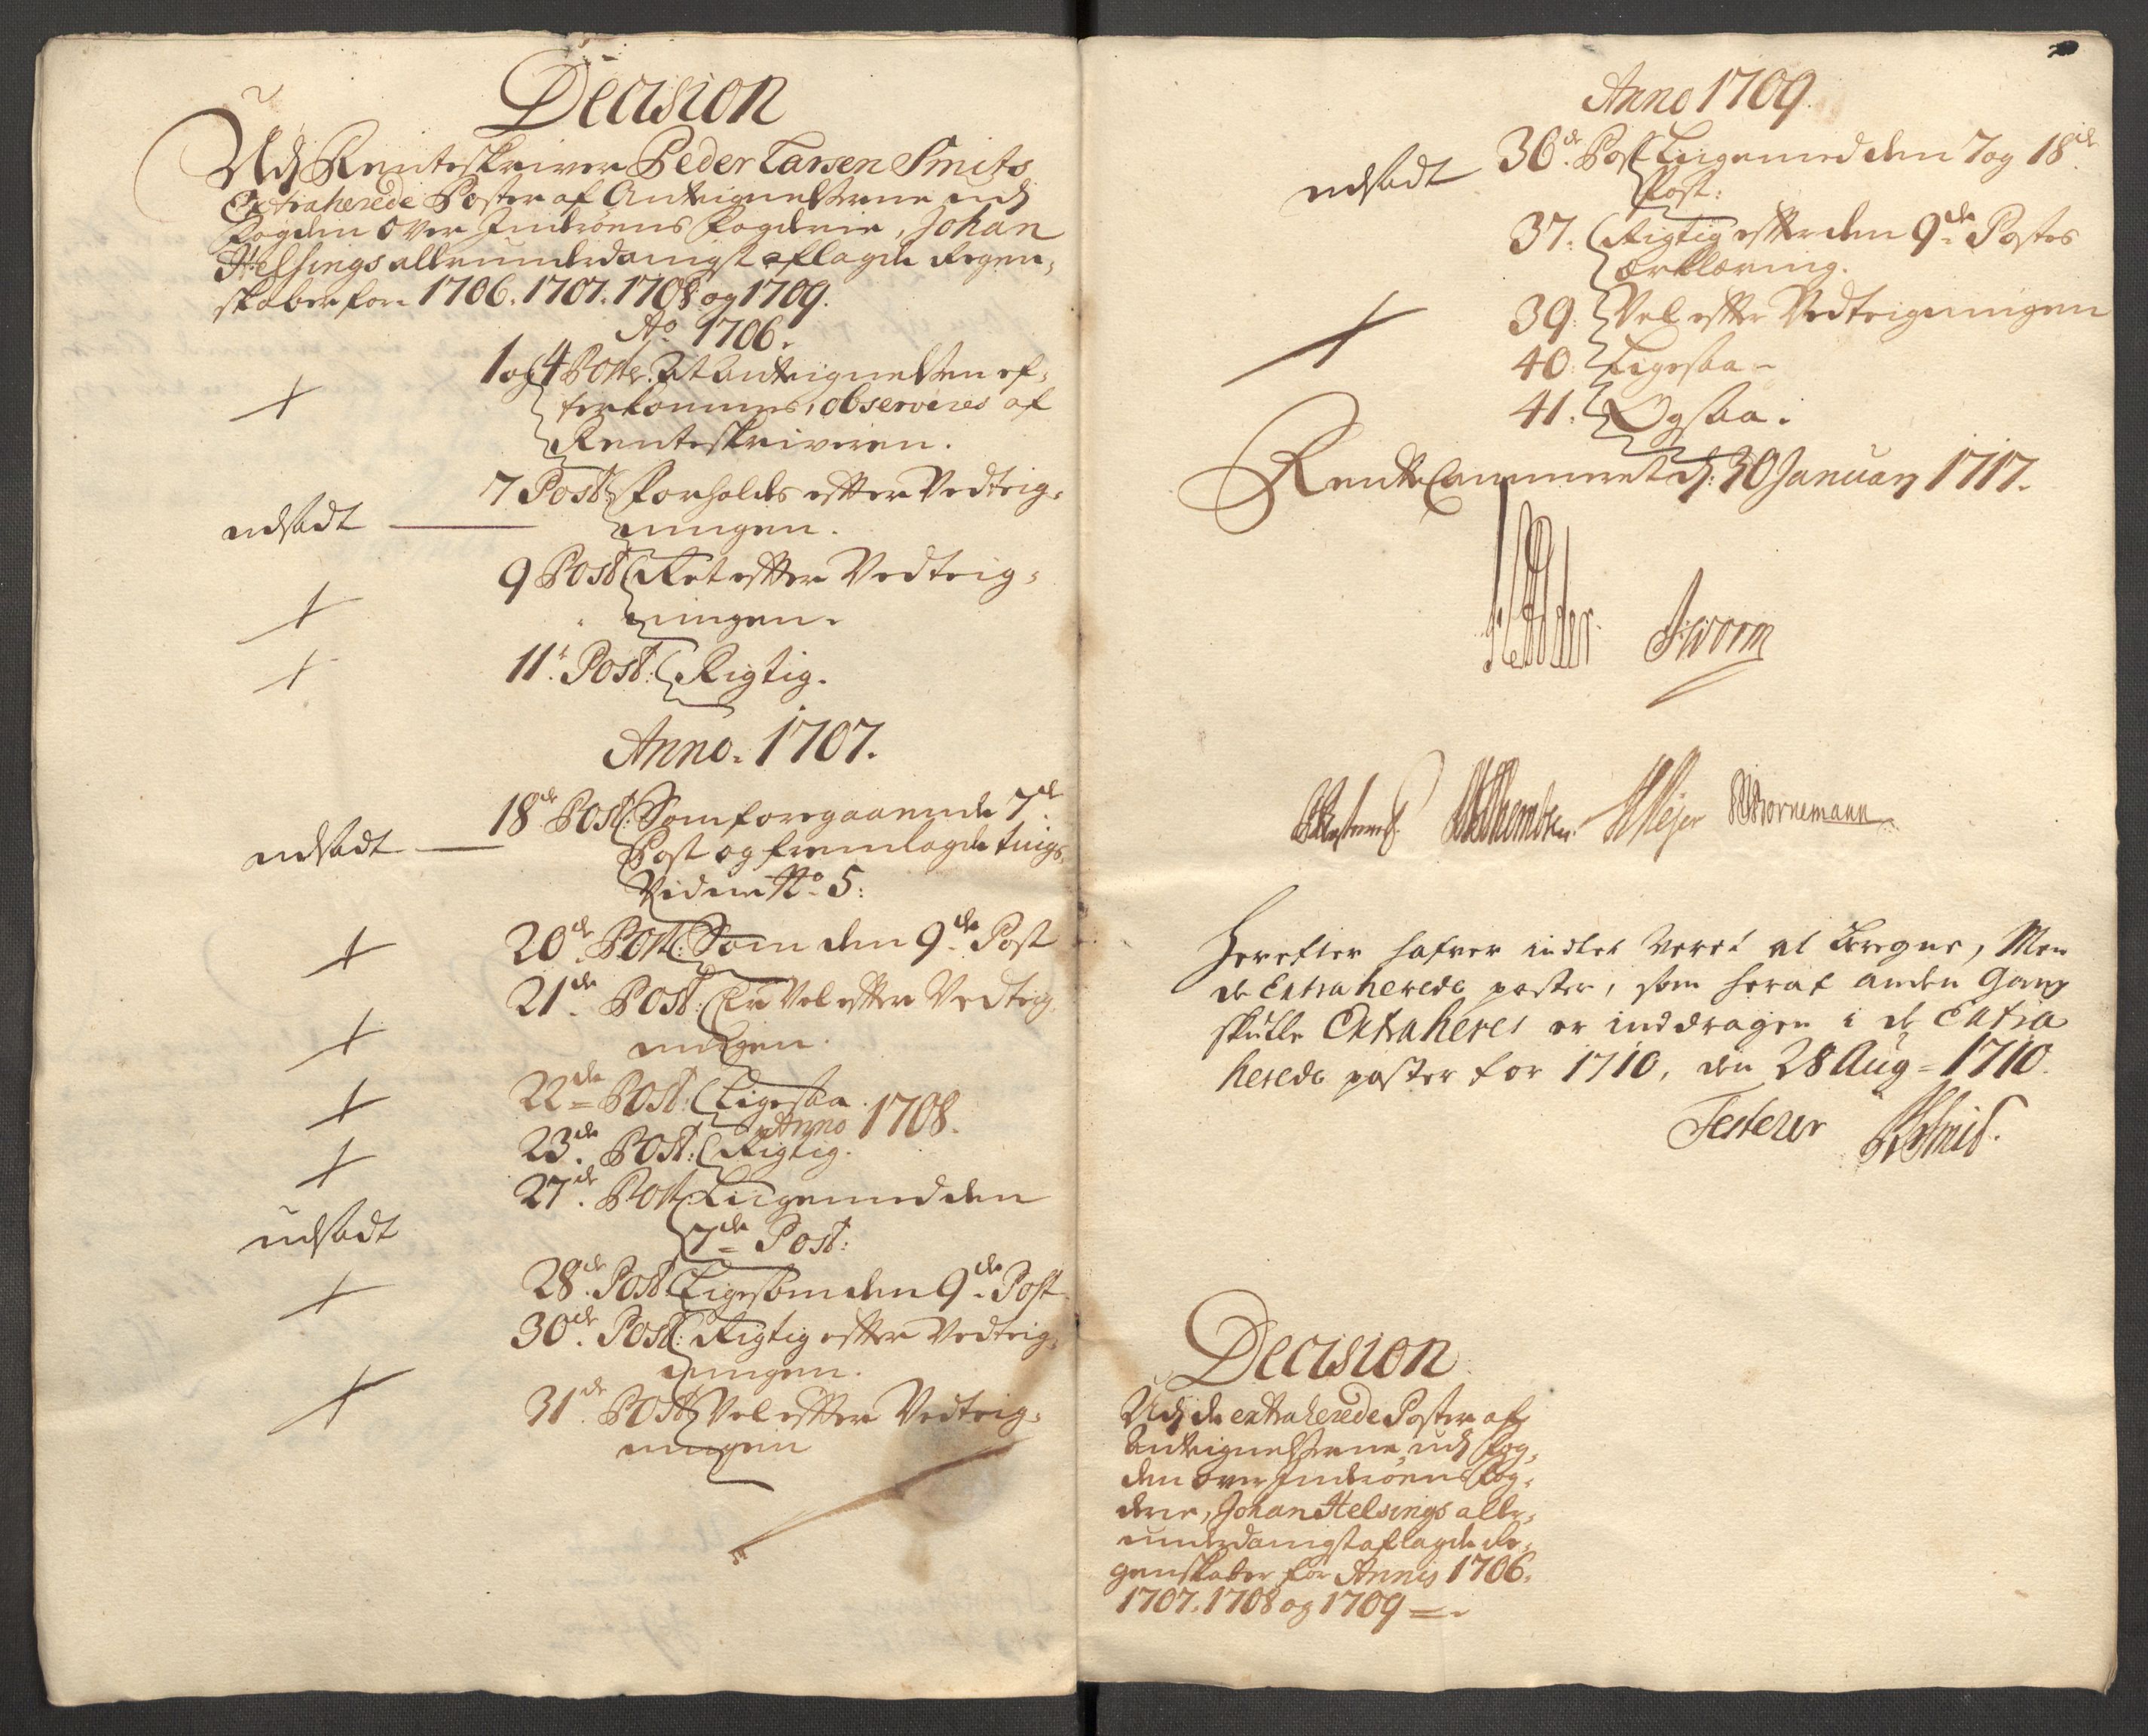 Decision
Udj Renteskriver Peder Larsen Smits
Extraherede Poster af Antegnelserne udj
Fogden over Inderöens Fogderie, Johan
Helsings allerunderdanigst aflagde Regen,
skaber for 1706. 1707. 1708 og 1709.
Ao 1706.
+ 1 og 4 Poster. At Antegnelsen ef,
terkommes, observeres af
Renteskriveren.
udsadt 7 Post: Forholdes effter Vedteig,
ningen.
+ 9 Post Ret effter Vedteig,
ningen.
+ 11te Post: Rigtig.
Anno. 1707.
udsadt 18de Post: Som foregaaende 7de
Post og fremlagde tings,
Vidne No 5:
+ 20de Post: Som den 9de Post
+ 21de Post: Er Vel effter Vedteig,
ningen.
+ 22de Post: Ligesaa.
Anno 1708.
+ 23de Post: Rigtig.
udsadt 27de Post: Liige med den
7de Post:
+ 28de Post Ligesom den 9de Post
30de Post: Rigtig effter Vedteig,
ningen.
+ 31de Post Vel effter Vedteig,
ningen
Anno 1709.
udsadt 36de Post Liige med den 7 og 18de
Post:
37. Rigtig effter den 9de Postes
Erklæring.
+ 39. Vel effter Vedteigningen
40. Ligesaa
41. Ogsaa.
Rente Cammeret d: 30 January 1717.
Worm
Meyer Bornemann
Herefter hafver indtet veret at beregne, Men
de Extraherede poster, som heraf anden Gang
skulle Extraheres er inddragen i de Extra
herede poster for 1710, den 28 Aug = 1710.
Testerer PLSmit.
Decision
Udj de extraherede Poster af
Antegnelserne udj Fog,
den over Inderöens Fog,
derie, Johan Helsings alle,
underdanigst aflagde Re,
genskaber for Annis 1706.
1707. 1708 og 1709